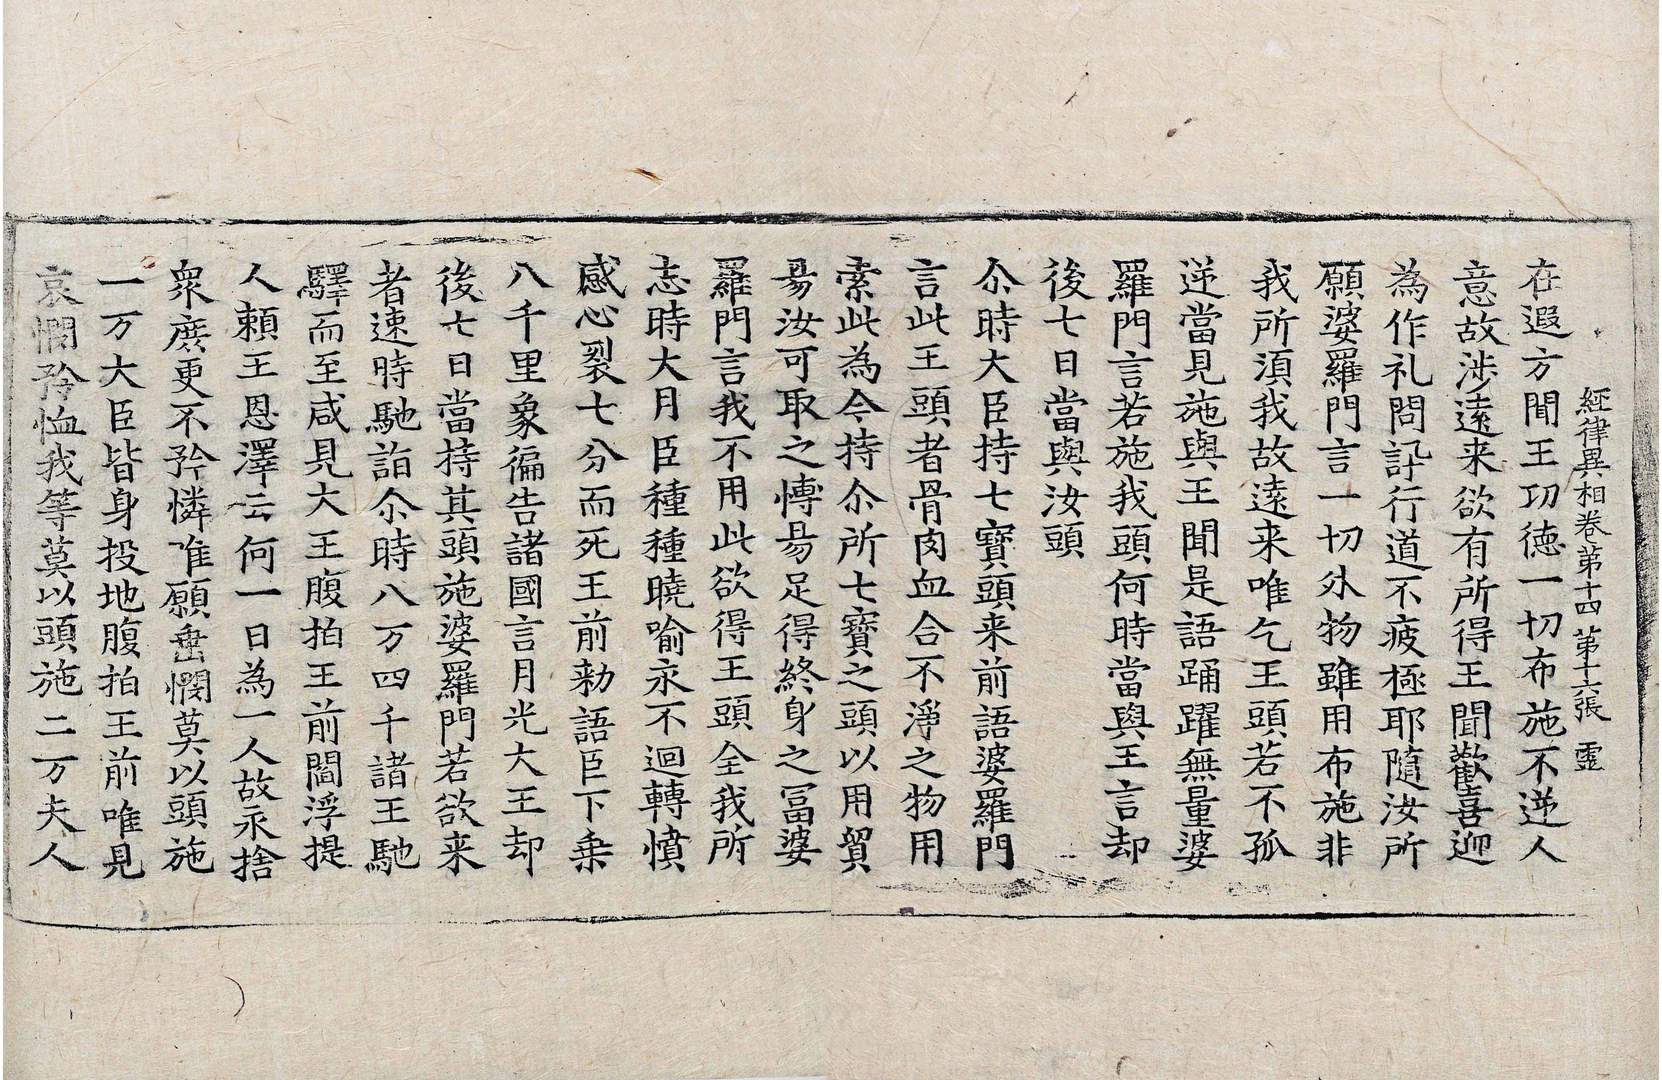 經律異相卷第十四 第十六張 靈
在遐方聞王功德一切布施不逆人
意故涉遠来欲有所得王聞歡喜迎
為作礼問訊行道不疲極耶隨汝所
願婆羅門言一切外物雖用布施非
我所湏我故遠来唯乞王頭若不孤
逆當見施與王聞是語踊躍無量婆
羅門言若施我頭何時當與王言却
後七日當與汝頭
尒時大臣持七寶頭来前語婆羅門
言此王頭者骨肉血合不淨之物用
索此為今持尒所七寶之頭以用貿
易汝可取之愽易足得終身之冨婆
羅門言我不用此欲得王頭全我所
志時大月臣種種曉喻永不迴轉憤
感心裂七分而死王前勑語臣下乗
八千里象徧告諸國言月光大王却
後七日當持其頭施婆羅門若欲来
者速時馳詣尒時八万四千諸王馳
驛而至咸見大王腹拍王前閻浮提
人賴王恩澤云何一日為一人故永捨
衆庶更不矜憐唯願垂憫莫以頭施
一万大臣皆身投地腹拍王前唯見
哀憫矜恤我等莫以頭施二万夫人